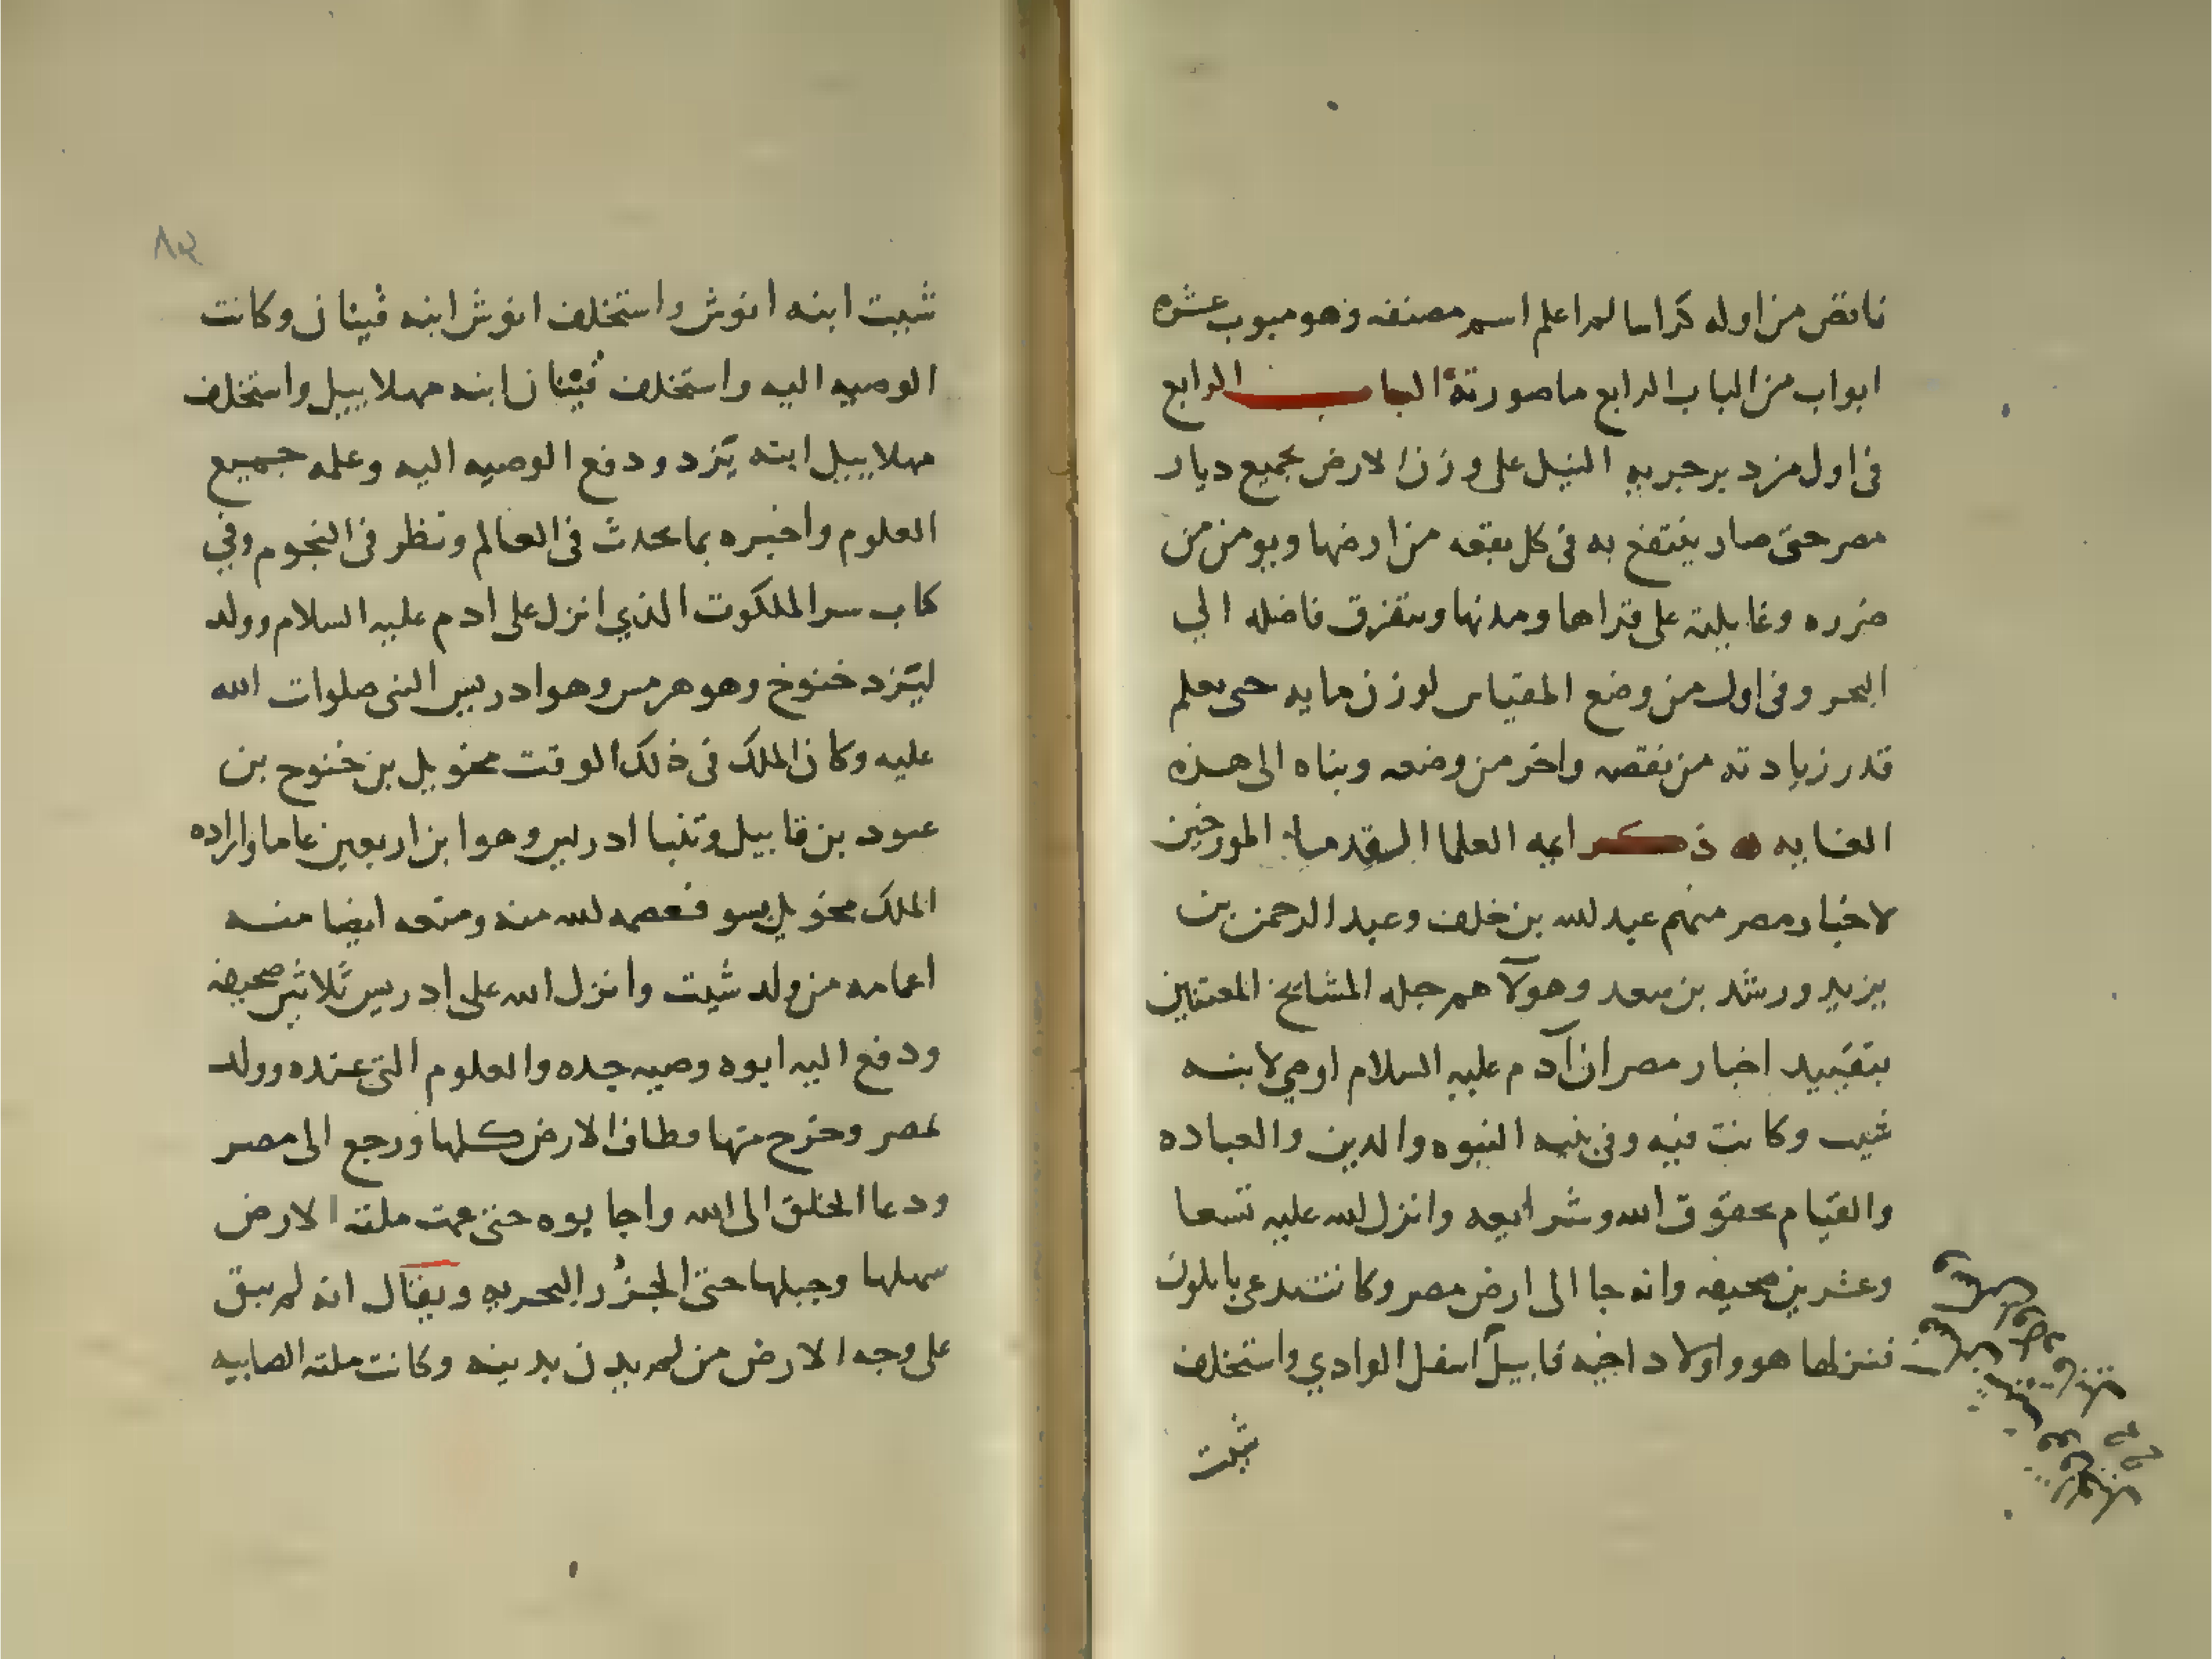 ناقص من اوله كراسا لم اعلم اسم مصنفه وهو مبوب عشره
ابواب من الباب الرابع ما صورته الباب الرابع
فى اول من دبر جريه النيل على وزن الارض بجميع ديار
مصر حتى صار ينتفع به فى كل بقعه من ارضها ويومن من
ضرره وغايلته على قراها ومدنها ويتفرق فاضله الي
البحر وفى اول من وضع المقياس لوزن مايه حى يعلم
قدر زيادته من نقصه واخر من وضعه وبناه الى هذه
الغايه ذكر ايمه العلما القدميا المورخين
لاخبار مصر منهم عبد الله بن خلف وعبد الرحمن بن
يزيد ورشد بن سعد وهولآ هم جله المشايخ المعتنين
بتقييد اخبار مصر ان آدم عليه السلام اوصي لابنه
شيت وكانت فيه وفى بنيه النبوه والدين والعباده
والقيام بحقوق الله وشرايعه وانزل الله عليه تسعا
وعشرين صحيفه وانه جا الى ارض مصر وكانت تدعى بابلون
فنزلها هو واولاد اخيه قابيل اسفل الوادي واستخلف
شيت
شيت ابنه انوش واستخلف انوش ابنه قينان وكانت
الوصيه اليه واستخلف قينان ابنه مهلاييل واستخلف
مهلاييل ابنه يزد ودفع الوصيه اليه وعلمه جميع
العلوم واخبره بما يحدث فى العالم ونظر فى النجوم وفي
كتاب سر الملكوت الذي انزل على ادم عليه السلام وولد
ليزد خنوخ وهو هرمس وهو ادريس النبى صلوات الله
عليه وكان الملك فى ذلك الوقت محويل بن خنوح بن
عبود بن قابيل وتنبا ادريس وهو ابن اربعين عاما واراده
الملك محويل بسو فعصمه الله منه ومنعه ايضا منه
اعمامه من ولد شيت وانزل الله على ادريس ثلاثين صحيفه
ودفع اليه ابوه وصيه جده والعلوم التى عنده وولد
بمصر وخرج منها وطاف الارض كلها ورجع الى مصر
ودعا الخلق الى الله واجابوه حتى عمت ملته الارض
سهلها وجبلها حتى الجزر البحريه ويقال انه لم يبق
على وجه الارض من لم يدن بدينه وكانت ملته الصابيه